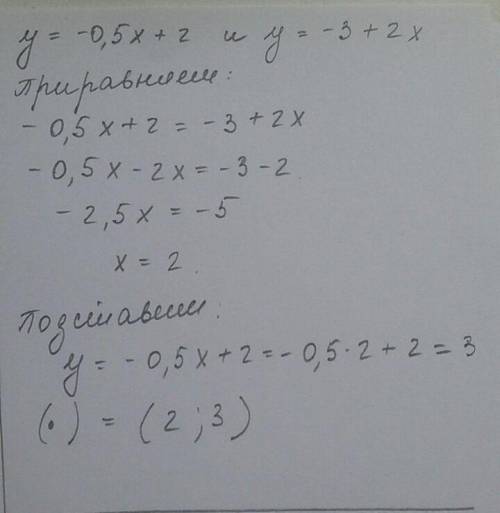 y = -0,5x + 2 и y = -3 + 2x
приравняем:
- 0,5x + 2 = -3 + 2x
- 0,5x - 2x = -3 - 2
- 2,5x = -5
x = 2.
подставим:
y = - 0,5x + 2 = - 0,5·2 + 2 = 3
(·) = (2 ; 3)